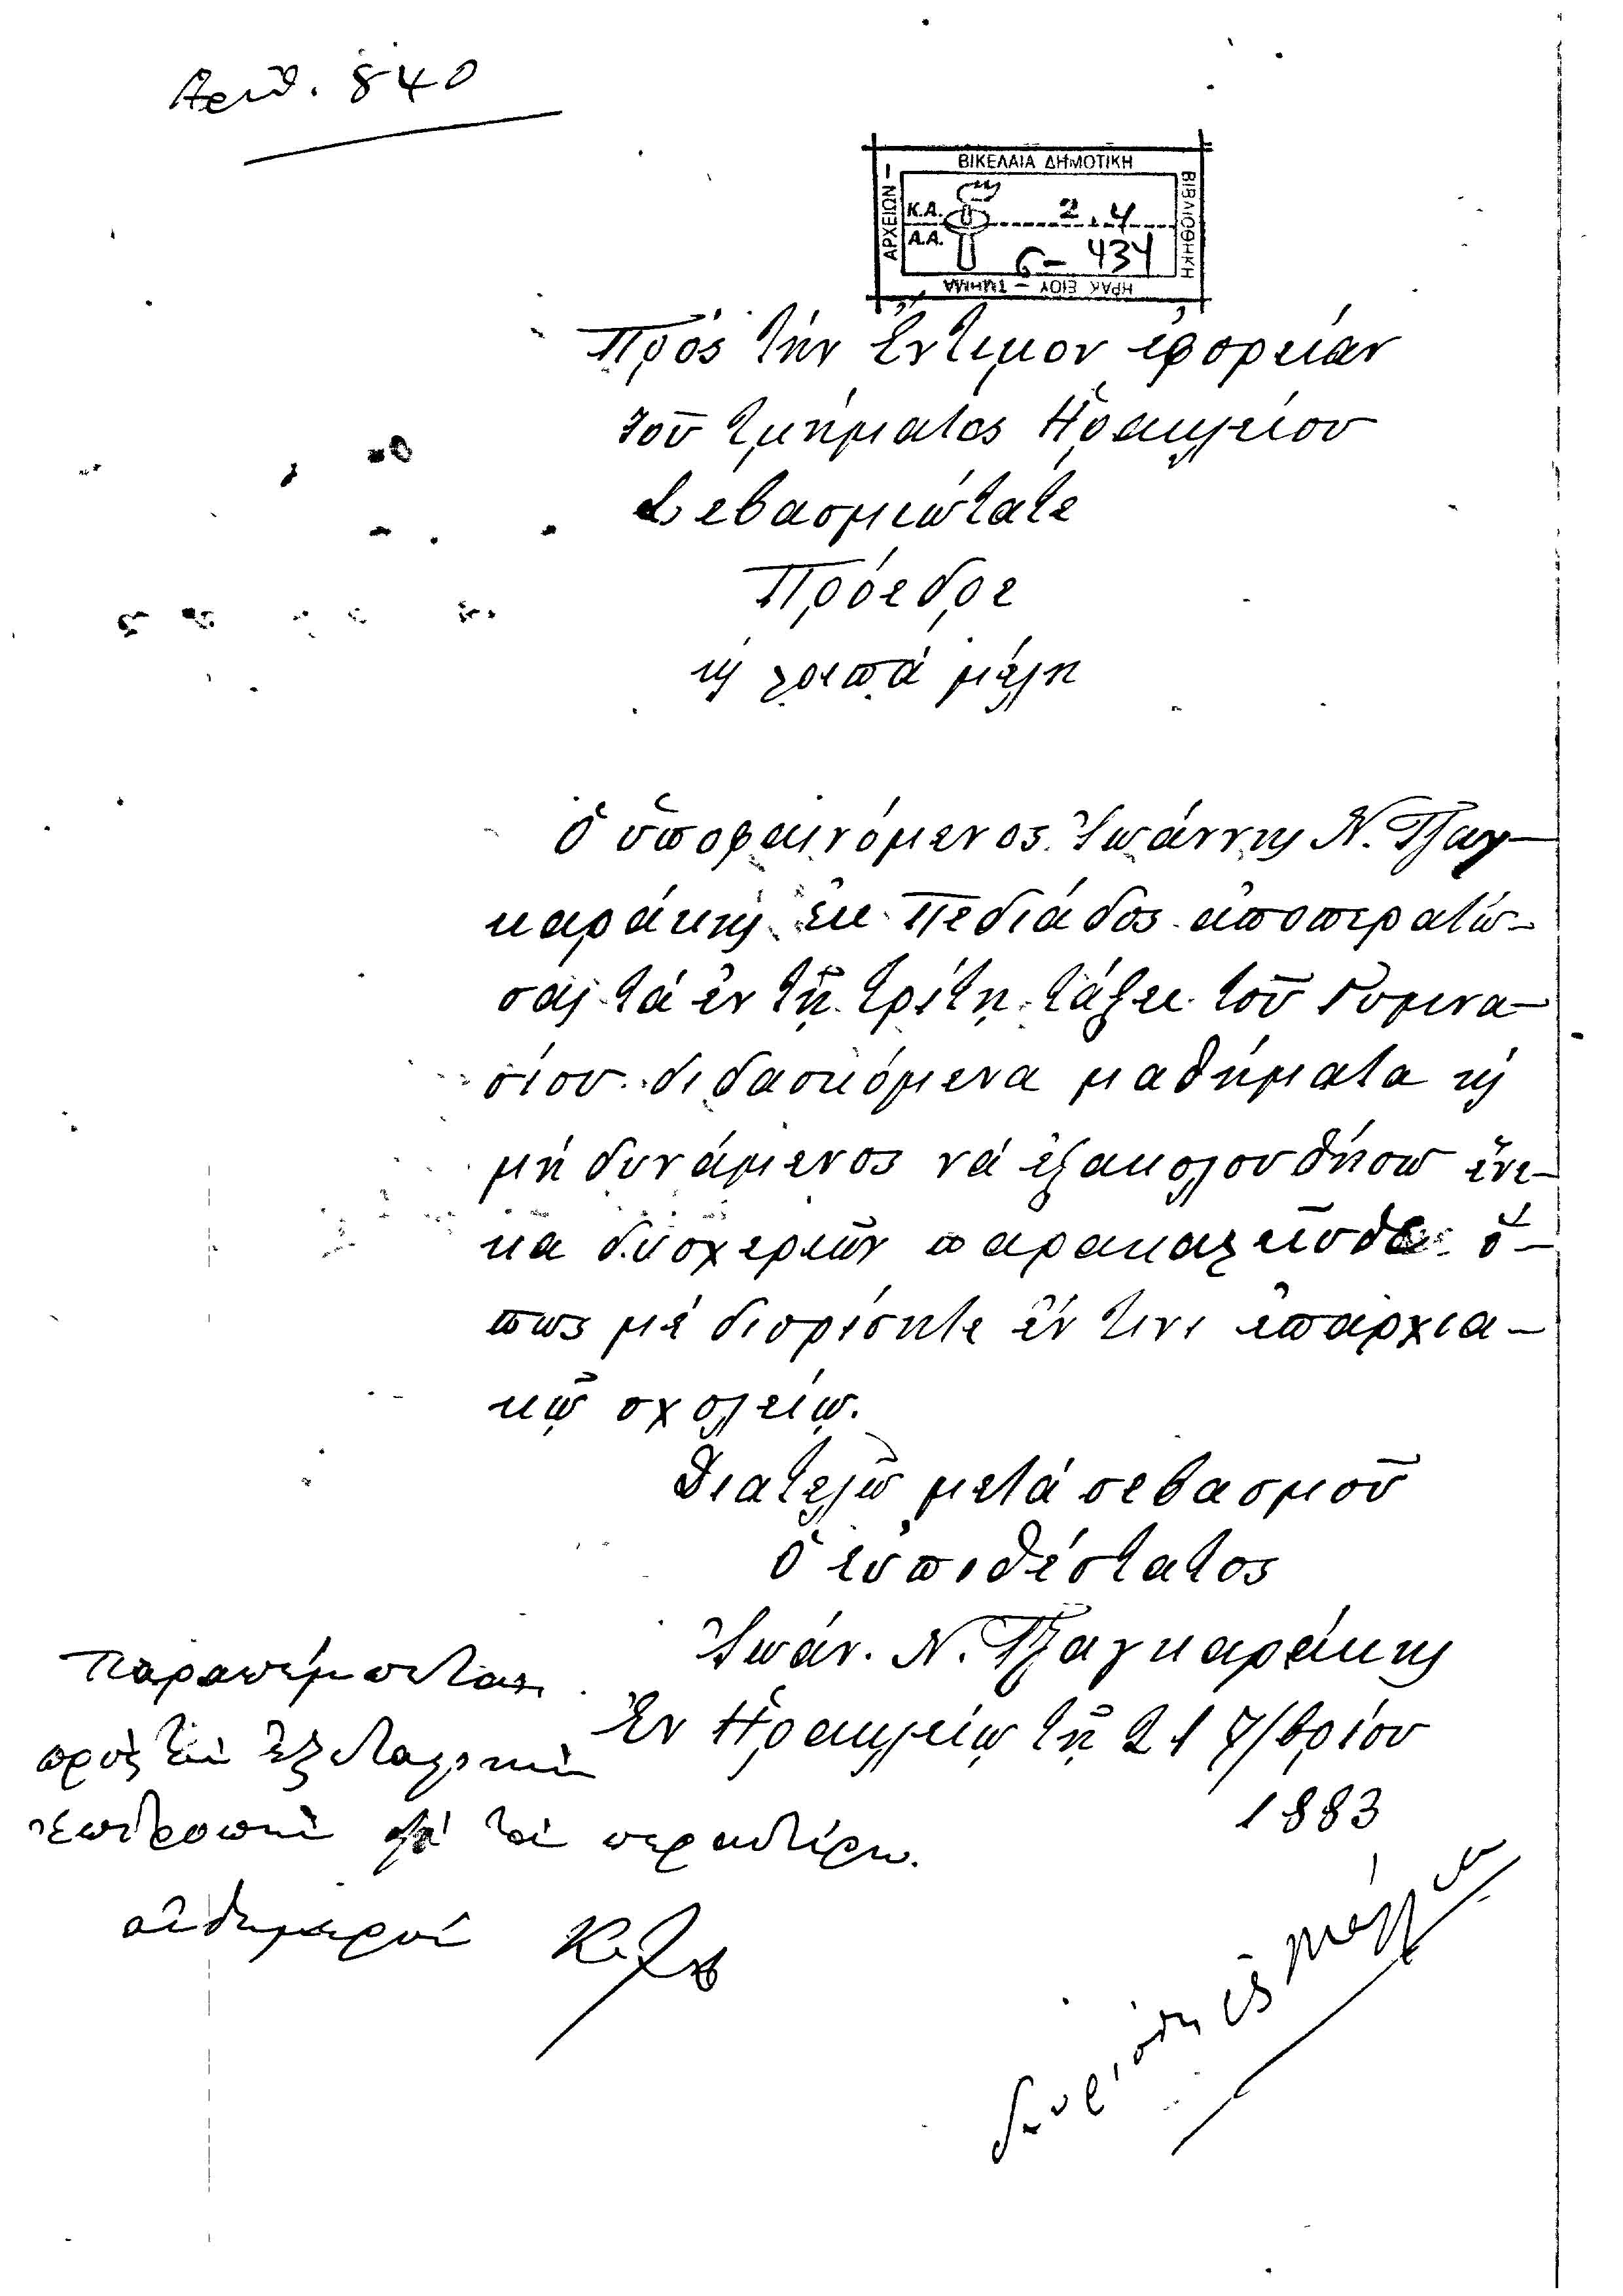 Ἀριθ. 840
ΒΙΚΕΛΑΙΑ ΔΗΜΟΤΙΚΗ
ΒΙΒΛΙΟΘΗΚΗ
ΗΡΑΚ ΕΙΟΥ – ΤΜΗΜΑ
ΑΡΧΕΙΩΝ –
Κ.Α. 2.4
Α.Α. 6– 434
Πρός τήν ἔντιμον ἐφορείαν
τοῦ τμήματος Ἡρακλείου
Σεβασμιώτατε
Πρόεδρε
κ λοιπά μέλη
Ὁ ὑποφαινόμενος Ἰωάννης Ν. Τζαγ–
καράκης ἐκ Πεδιάδος ἀποπερατώ–
σας τά ἐν τῇ τρίτῃ τάξει τοῦ Γυμνα–
σίου διδασκόμενα μαθήματα κ
μή δυνάμενος νά ἐξακολουθήσω ἕνε–
κα δυσχερειῶν παρακαλεῖσθε ὅ–
πως μέ διορίσητε ἐν τινι ἐπαρχια–
κῷ σχολείῳ.
Διατελῶ μετά σεβασμοῦ
Ὁ εὐπειθέστατος
Ἰωάν. Ν. Τζαγκαράκης
Ἐν Ἡρακλείῳ τῇ 21 7/βρίου
1883
Παραπέμπεται
πρὸς τὴν ἐξεταστικὴν
ἐπιτροπὴν διὰ τὰ περαιτέρω.
αὐθημερόν
διορίσθη εἰς